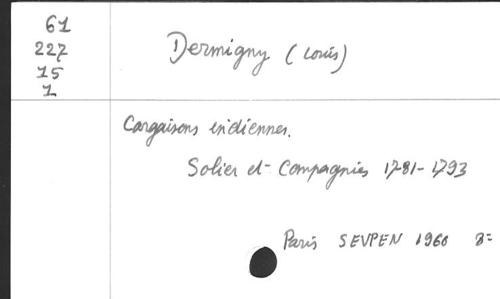 61
227
15
1
Dermigny (Louis)
Cargaisons indiennes.
Solier et Compagnies 1781-1793
Paris SEVPEN 1960 8=